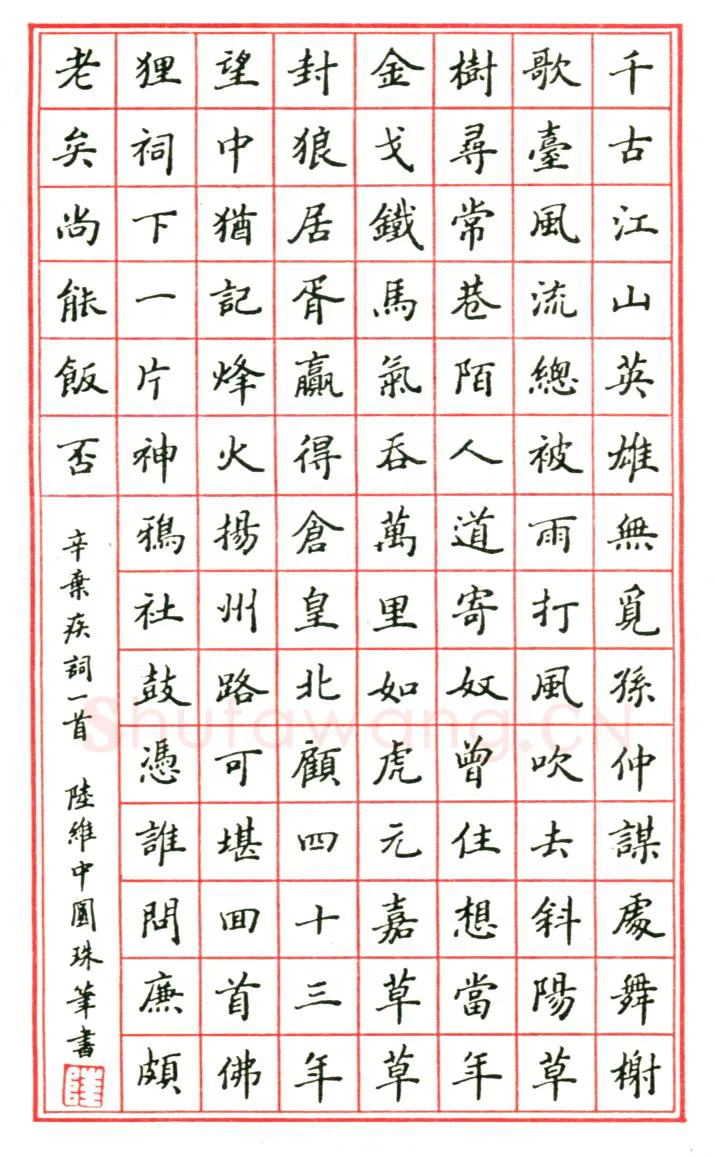 千古江山英雄無覓孫仲謀處舞榭
歌臺風流總被雨打風吹去斜陽草
樹尋常巷陌人道寄奴曾住想當年
金戈鐵馬氣吞萬里如虎元嘉草草
封狼居胥贏得倉皇北顧四十三年
望中猶記烽火揚州路可堪回首佛
狸祠下一片神鴉社鼓憑誰問廉頗
老矣尚能飯否
辛棄疾詞一首 陸維中圓珠筆書
陸
Shufawang.CN